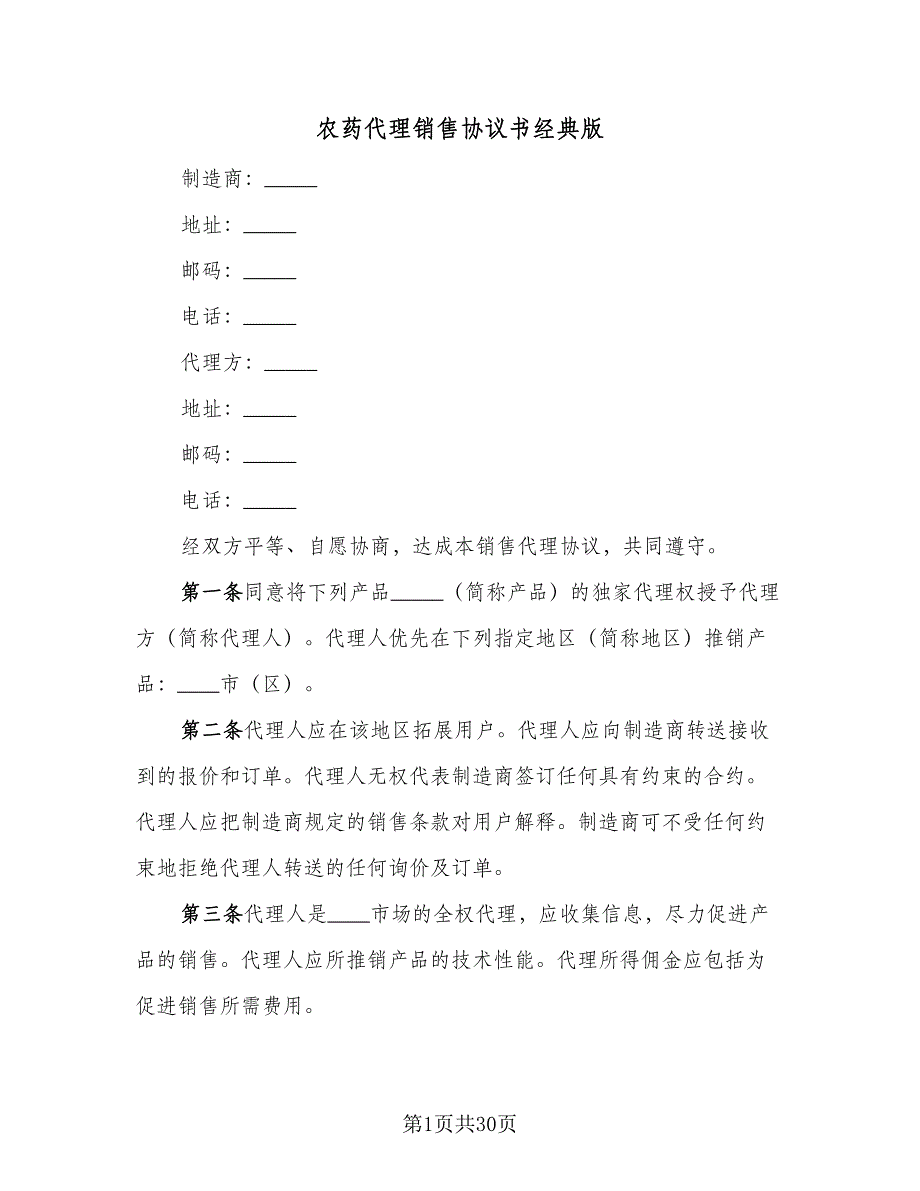 农药代理销售协议书经典版
制造商：_____
地址：_____
邮码：_____
电话：_____
代理方：_____
地址：_____
邮码：_____
电话：_____
经双方平等、自愿协商，达成本销售代理协议，共同遵守。
第一条同意将下列产品_____（简称产品）的独家代理权授予代理
方（简称代理人）。代理人优先在下列指定地区（简称地区）推销产
品：____市（区）。
第二条代理人应在该地区拓展用户。代理人应向制造商转送接收
到的报价和订单。代理人无权代表制造商签订任何具有约束的合约。
代理人应把制造商规定的销售条款对用户解释。制造商可不受任何约
束地拒绝代理人转送的任何询价及订单。
第三条代理人是____市场的全权代理，应收集信息，尽力促进产
品的销售。代理人应所推销产品的技术性能。代理所得佣金应包括为
促进销售所需费用。
第1页共30页